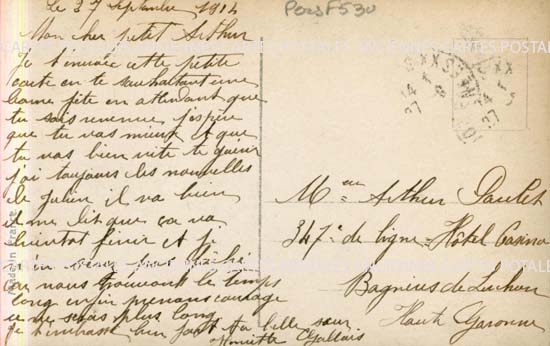 le 27 septembre 1914
Pers F530
Mon cher petit Arthur
Je t'envoie cette petite
carte en te souhaitant une
bonne fête en attendant que
tu sois revenu j'espère
que tu vas mieux et que
tu vas bien vite te guerir
j'ai toujours des nouvelles
de Julien il va bien
il me dit que ça va
bientot finir et je
car nous trouvons le temps
long enfin prenons courage
je t'embrasse bien fort ta belle sœur
Henriette Gallais
Made in France
Mr Arthur Paulet
347e de ligne Hôtel Casino
Bagnères de Luchon
Haute Garonne